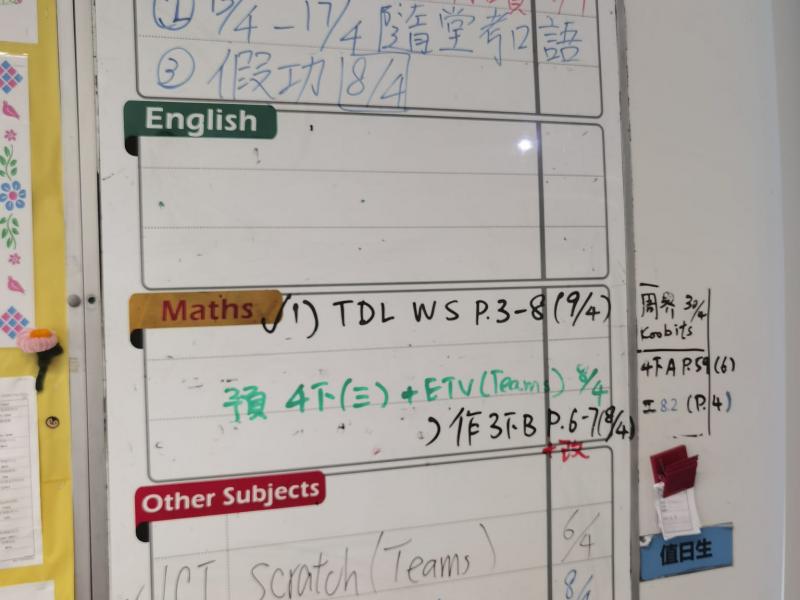 ② 15/4-17/4 隨堂考口語
③ 假功 8/4
English
Maths
✓1) TDL WS P.3-8 (9/4)
預 4下(三) + ETV(Teams) 8/4
) 作 3下B P.6-7(8/4)
+改
Other Subjects
ICT Scratch (Teams) 6/4
8/4
周界 30/4
Koobits
4下A P.59 (6)
工8.2 (P.4)
值日生